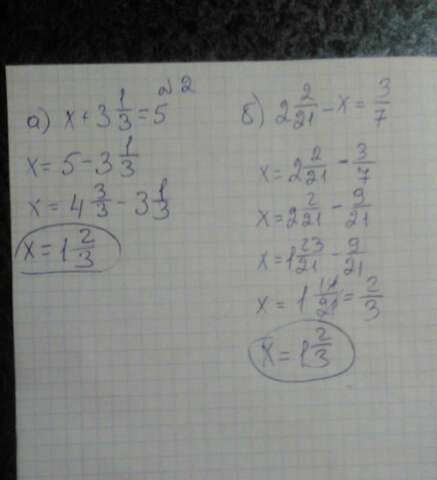 №2
а) x + 3 1/3 = 5
x = 5 - 3 1/3
x = 4 3/3 - 3 1/3
x = 1 2/3
б) 2 2/21 - x = 3/7
x = 2 2/21 - 3/7
x = 2 2/21 - 9/21
x = 1 23/21 - 9/21
x = 1 14/21 = 2/3
x = 1 2/3